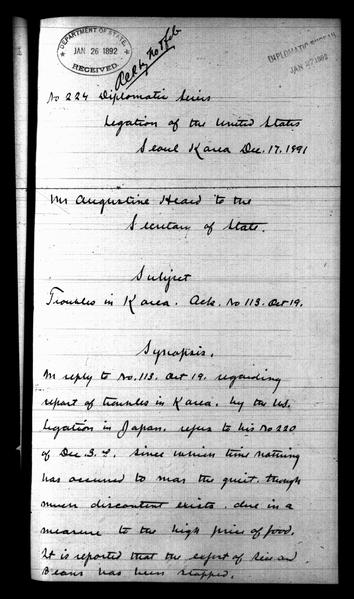 DEPARTMENT OF STATE,
JAN 26 1892
RECEIVED.
DIPLOMATIC BUREAU
JAN 27 1892
No 224 Diplomatic Series
Legation of the United States
Seoul Korea Dec. 17. 1891
Mr Augustine Heard to the
Secretary of State.
Subject
Troubles in Korea. Ack. No 113. Oct 19.
Synopsis.
In reply to No. 113. Oct 19. regarding
report of troubles in Korea. by the U.S.
Legation in Japan. refers to his No 220
of Dec. 3d. Since which time nothing
has occurred to mar the quiet. though
much discontent exists. due in a
measure to the high price of food.
It is reported that the export of Rice and
Beans has been stopped.